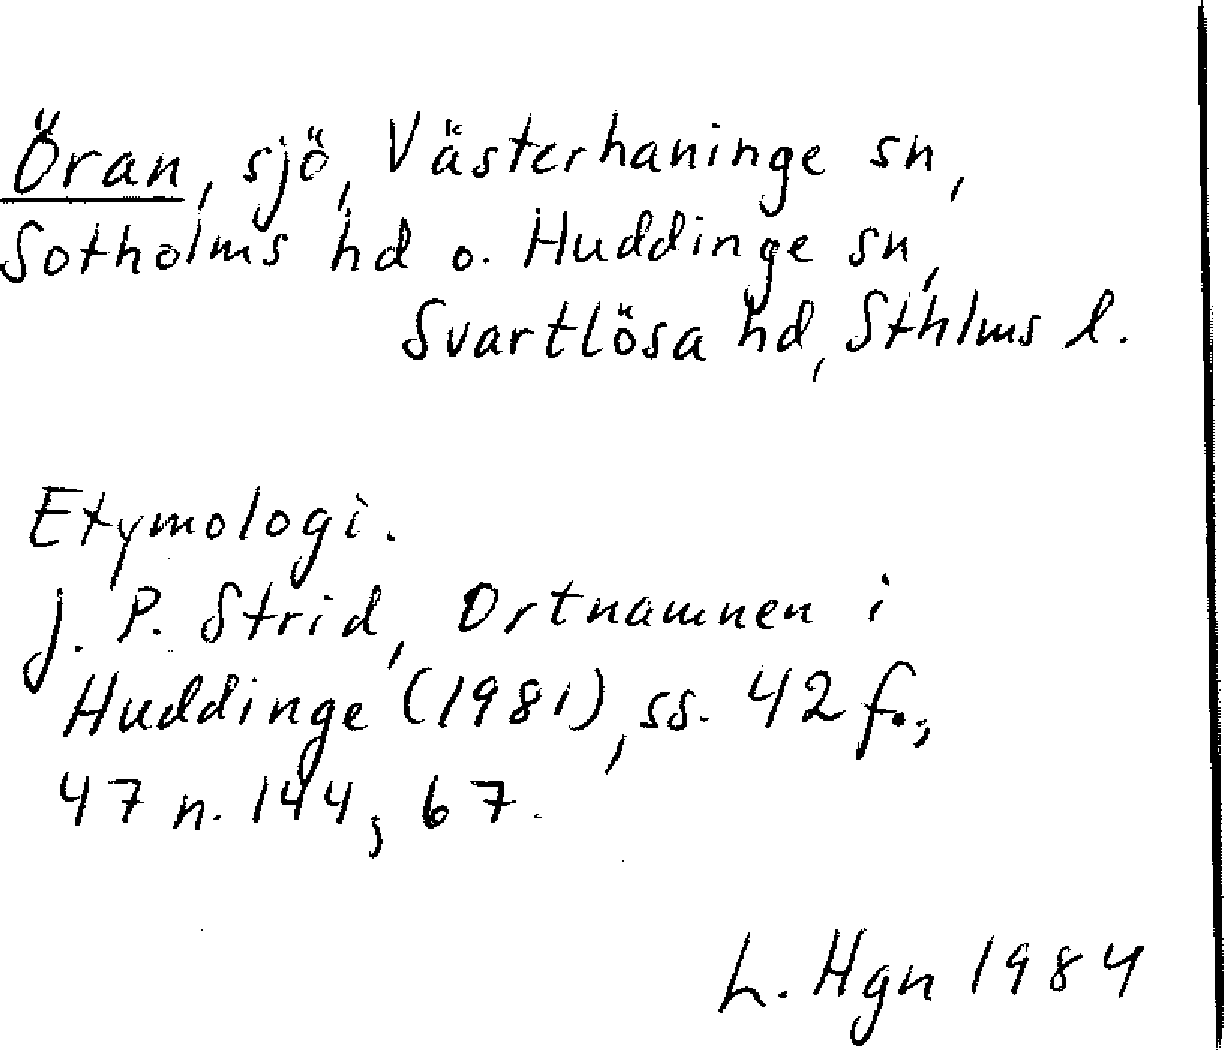 Öran, sjö, Västerhaninge sn,
Sotholms hd o. Huddinge sn,
Svartlösa hd, Sthlms l.
Etymologi.
J. P. Strid, Ortnamnen i
Huddinge (1981), ss. 42 f.,
47 n. 144, 67.
L. Hgn 1984